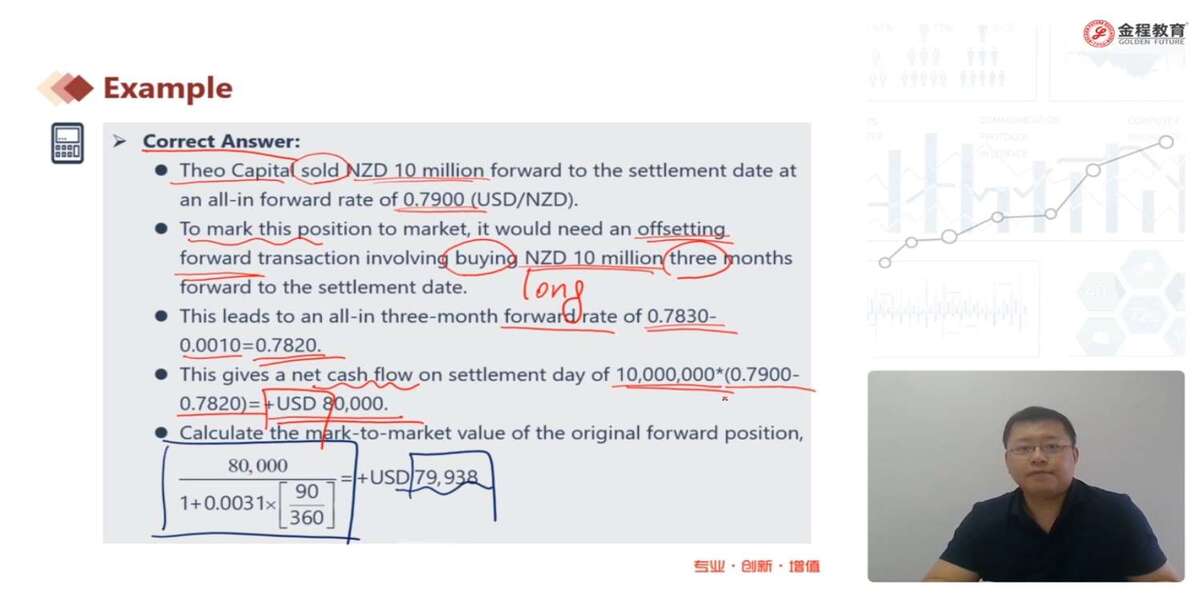 金程教育
GOLDEN FUTURE
Example
➤ Correct Answer:
● Theo Capital sold NZD 10 million forward to the settlement date at
an all-in forward rate of 0.7900 (USD/NZD).
● To mark this position to market, it would need an offsetting
forward transaction involving buying NZD 10 million three months
forward to the settlement date.
long
● This leads to an all-in three-month forward rate of 0.7830-
0.0010=0.7820.
● This gives a net cash flow on settlement day of 10,000,000*(0.7900-
0.7820)= +USD 80,000.
● Calculate the mark-to-market value of the original forward position,
80,000
1+0.0031×[90/360]
=+USD 79,938
专业·创新·增值